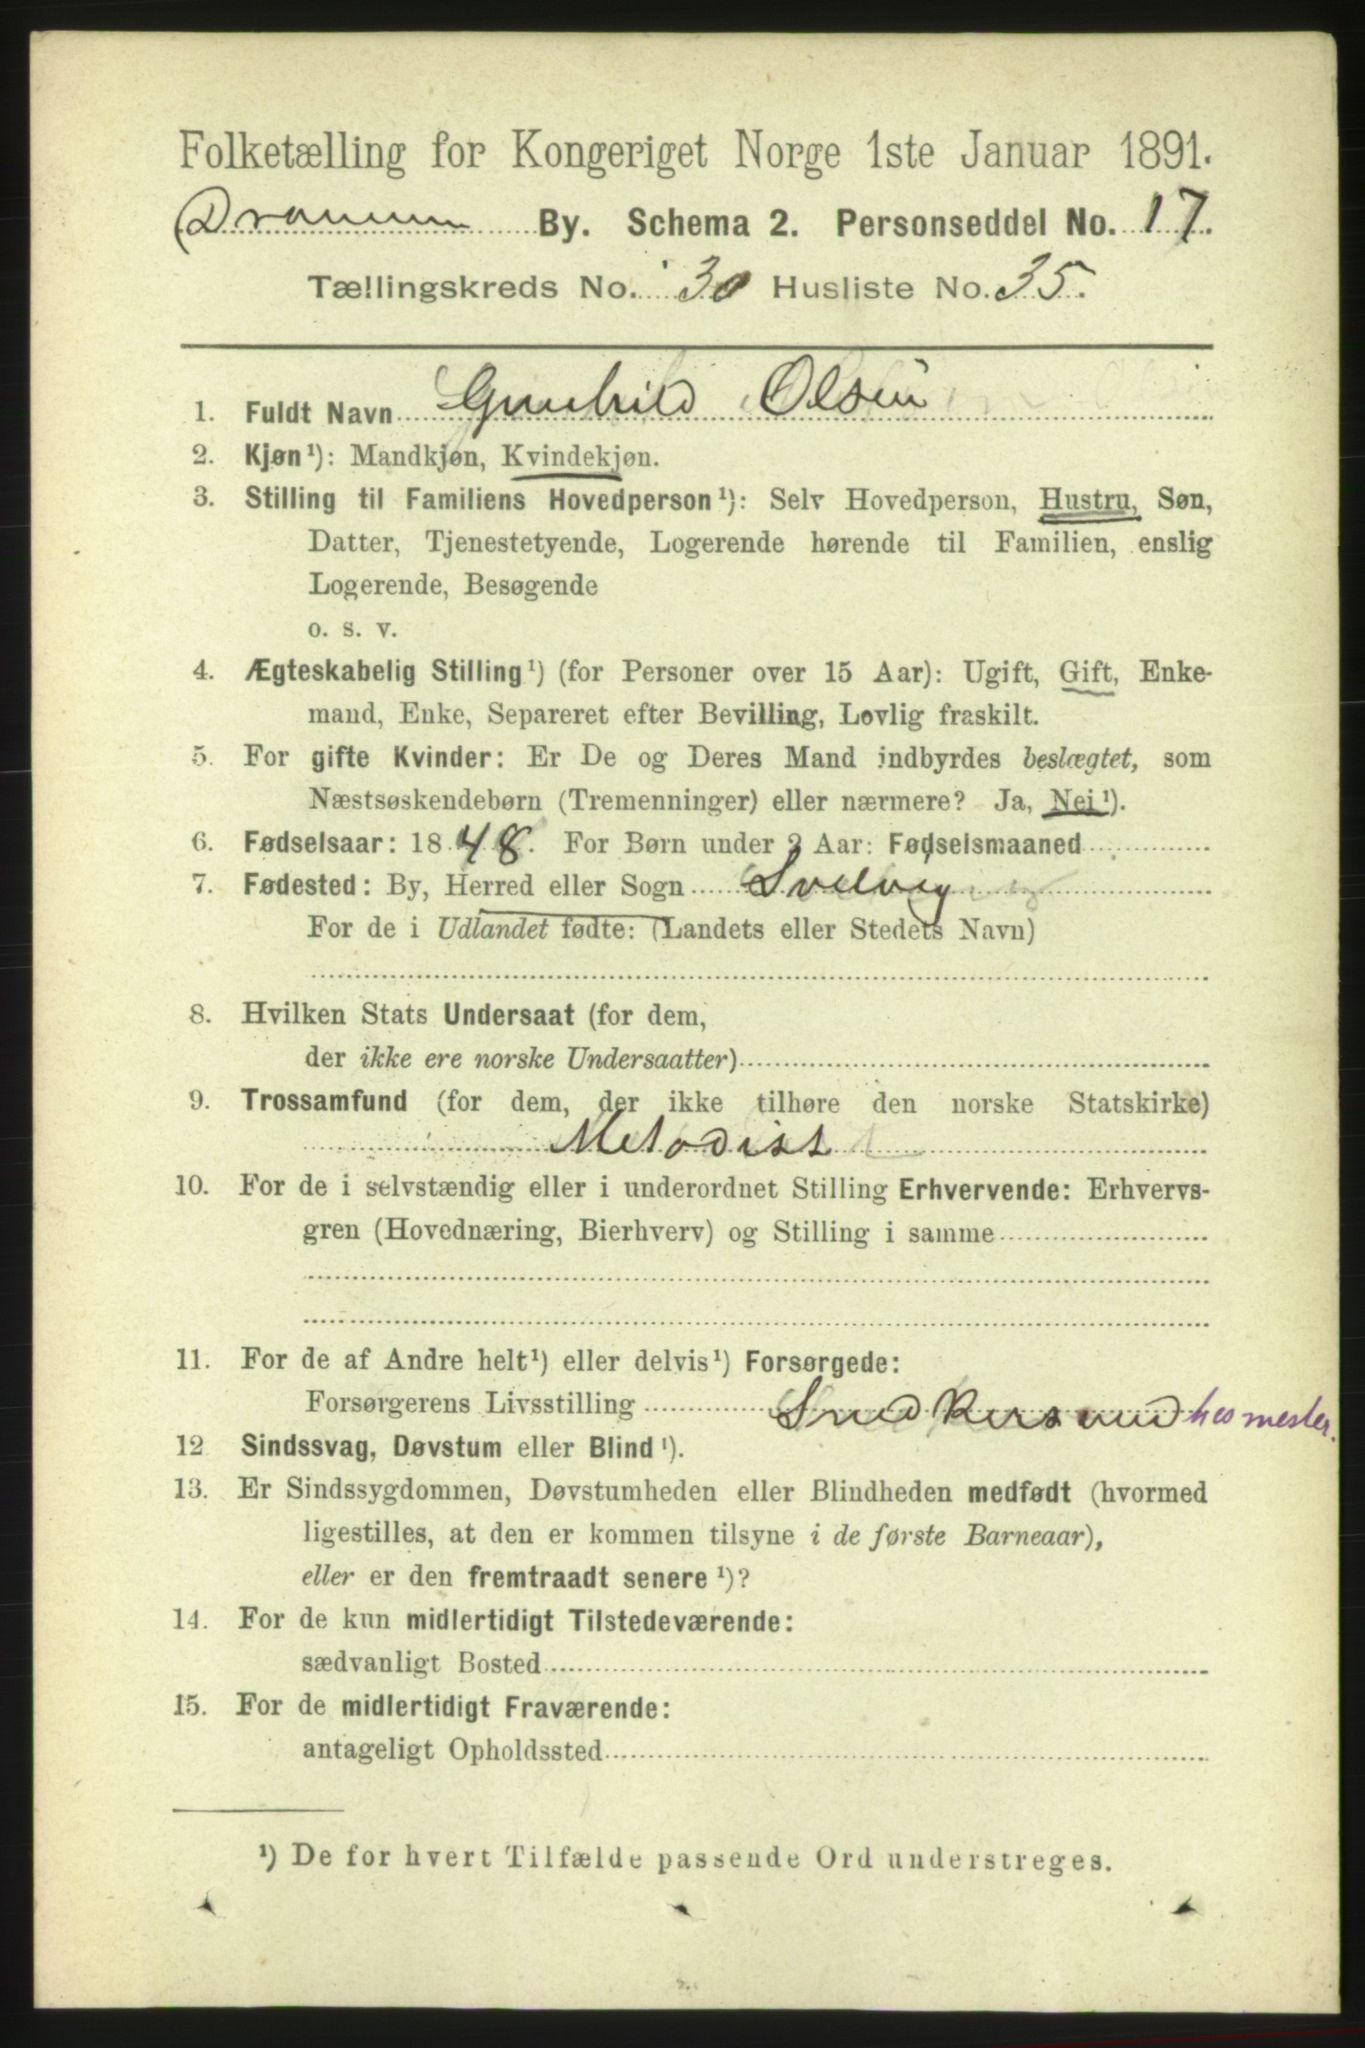 Folketælling for Kongeriget Norge 1ste Januar 1891.
Drammen By. Schema 2. Personseddel No. 17.
Tællingskreds No. 30 Husliste No. 35.
1. Fuldt Navn Gunhild Olsen
2. Kjøn ¹): Mandkjøn, Kvindekjøn.
3. Stilling til Familiens Hovedperson ¹): Selv Hovedperson, Hustru, Søn,
Datter, Tjenestetyende, Logerende hørende til Familien, enslig
Logerende, Besøgende
o. s. v.
4. Ægteskabelig Stilling ¹) (for Personer over 15 Aar): Ugift, Gift, Enke-
mand, Enke, Separeret efter Bevilling, Lovlig fraskilt.
5. For gifte Kvinder: Er De og Deres Mand indbyrdes beslægtet, som
Næstsøskendebørn (Tremenninger) eller nærmere? Ja, Nei ¹).
6. Fødselsaar: 1848. For Børn under 2 Aar: Fødselsmaaned
7. Fødested: By, Herred eller Sogn Svelvig
For de i Udlandet fødte: (Landets eller Stedets Navn)
8. Hvilken Stats Undersaat (for dem,
der ikke ere norske Undersaatter)
9. Trossamfund (for dem, der ikke tilhøre den norske Statskirke)
Metodist
10. For de i selvstændig eller i underordnet Stilling Erhvervende: Erhvervs-
gren (Hovednæring, Bierhverv) og Stilling i samme
11. For de af Andre helt ¹) eller delvis ¹) Forsørgede:
Forsørgerens Livsstilling Snedkersvend hos mester.
12 Sindssvag, Døvstum eller Blind ¹).
13. Er Sindssygdommen, Døvstumheden eller Blindheden medfødt (hvormed
ligestilles, at den er kommen tilsyne i de første Barneaar),
eller er den fremtraadt senere ¹)?
14. For de kun midlertidigt Tilstedeværende:
sædvanligt Bosted
15. For de midlertidigt Fraværende:
antageligt Opholdssted
¹) De for hvert Tilfælde passende Ord understreges.